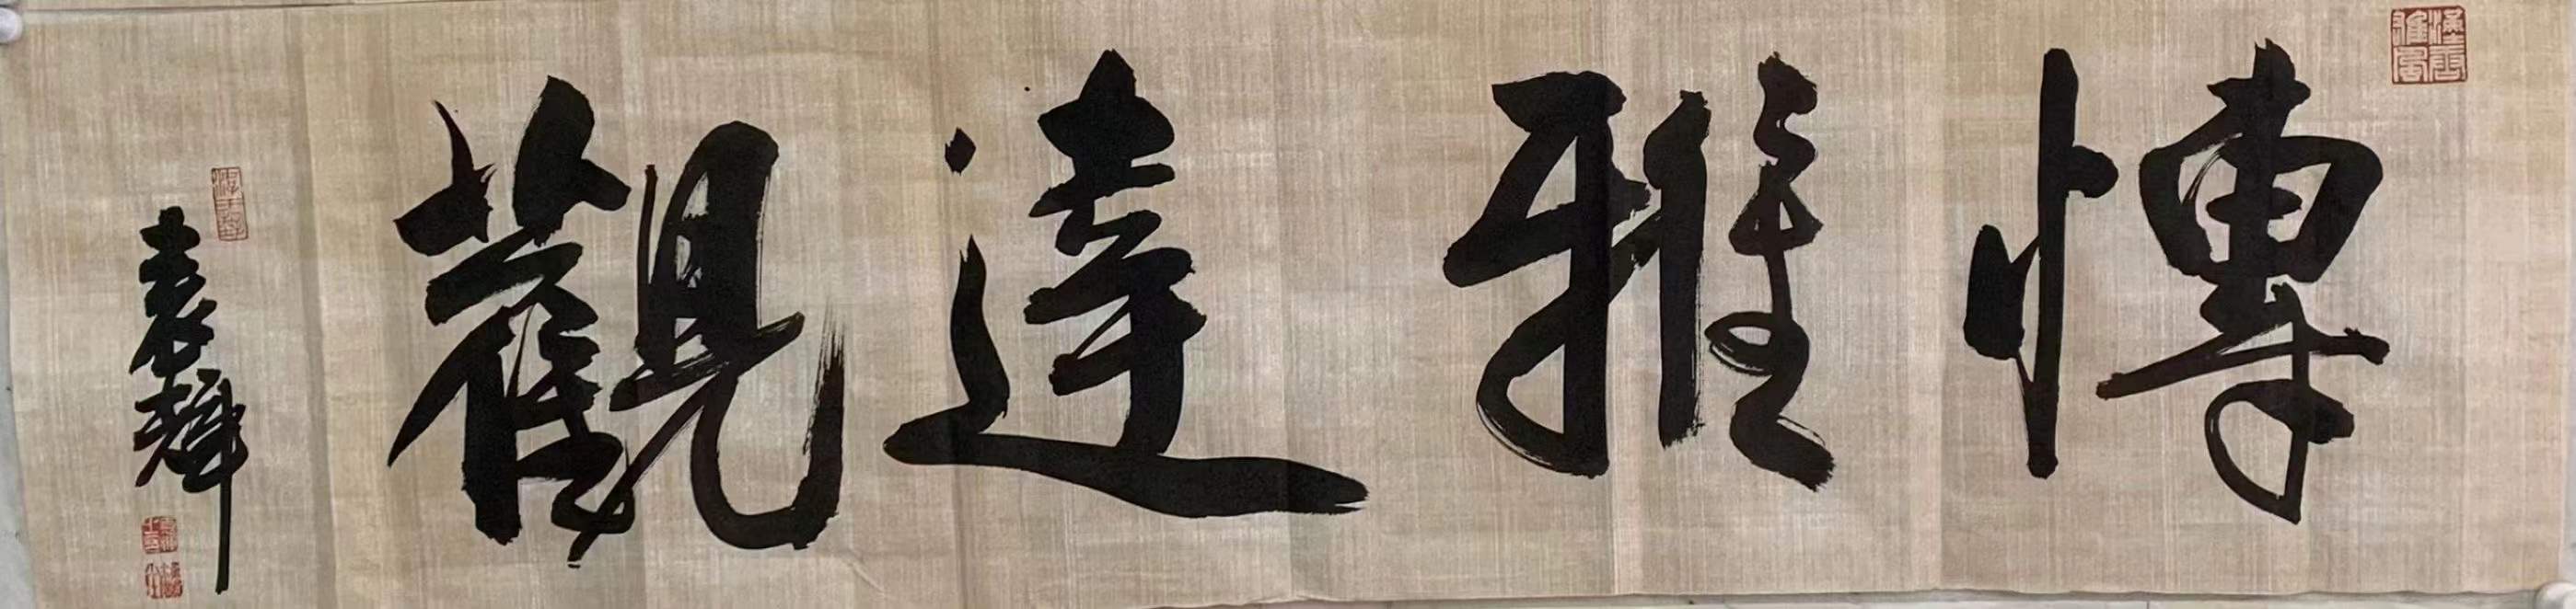 博雅達觀
袁輝